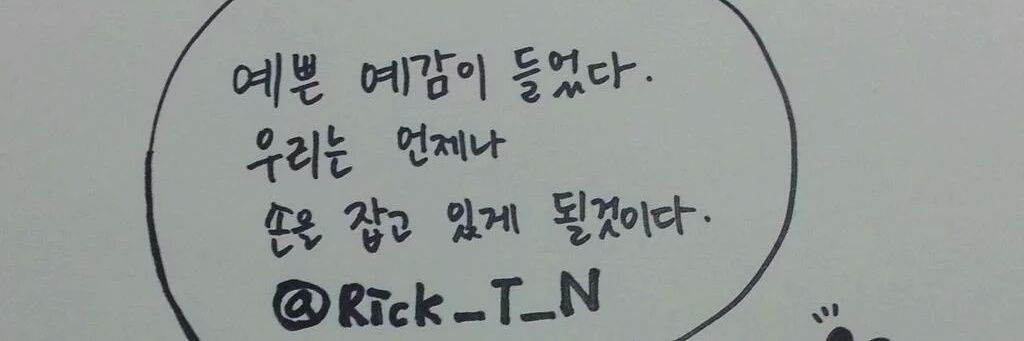 예쁜 예감이 들었다.
우리는 언제나
손을 잡고 있게 될것이다.
@Rick_T_N